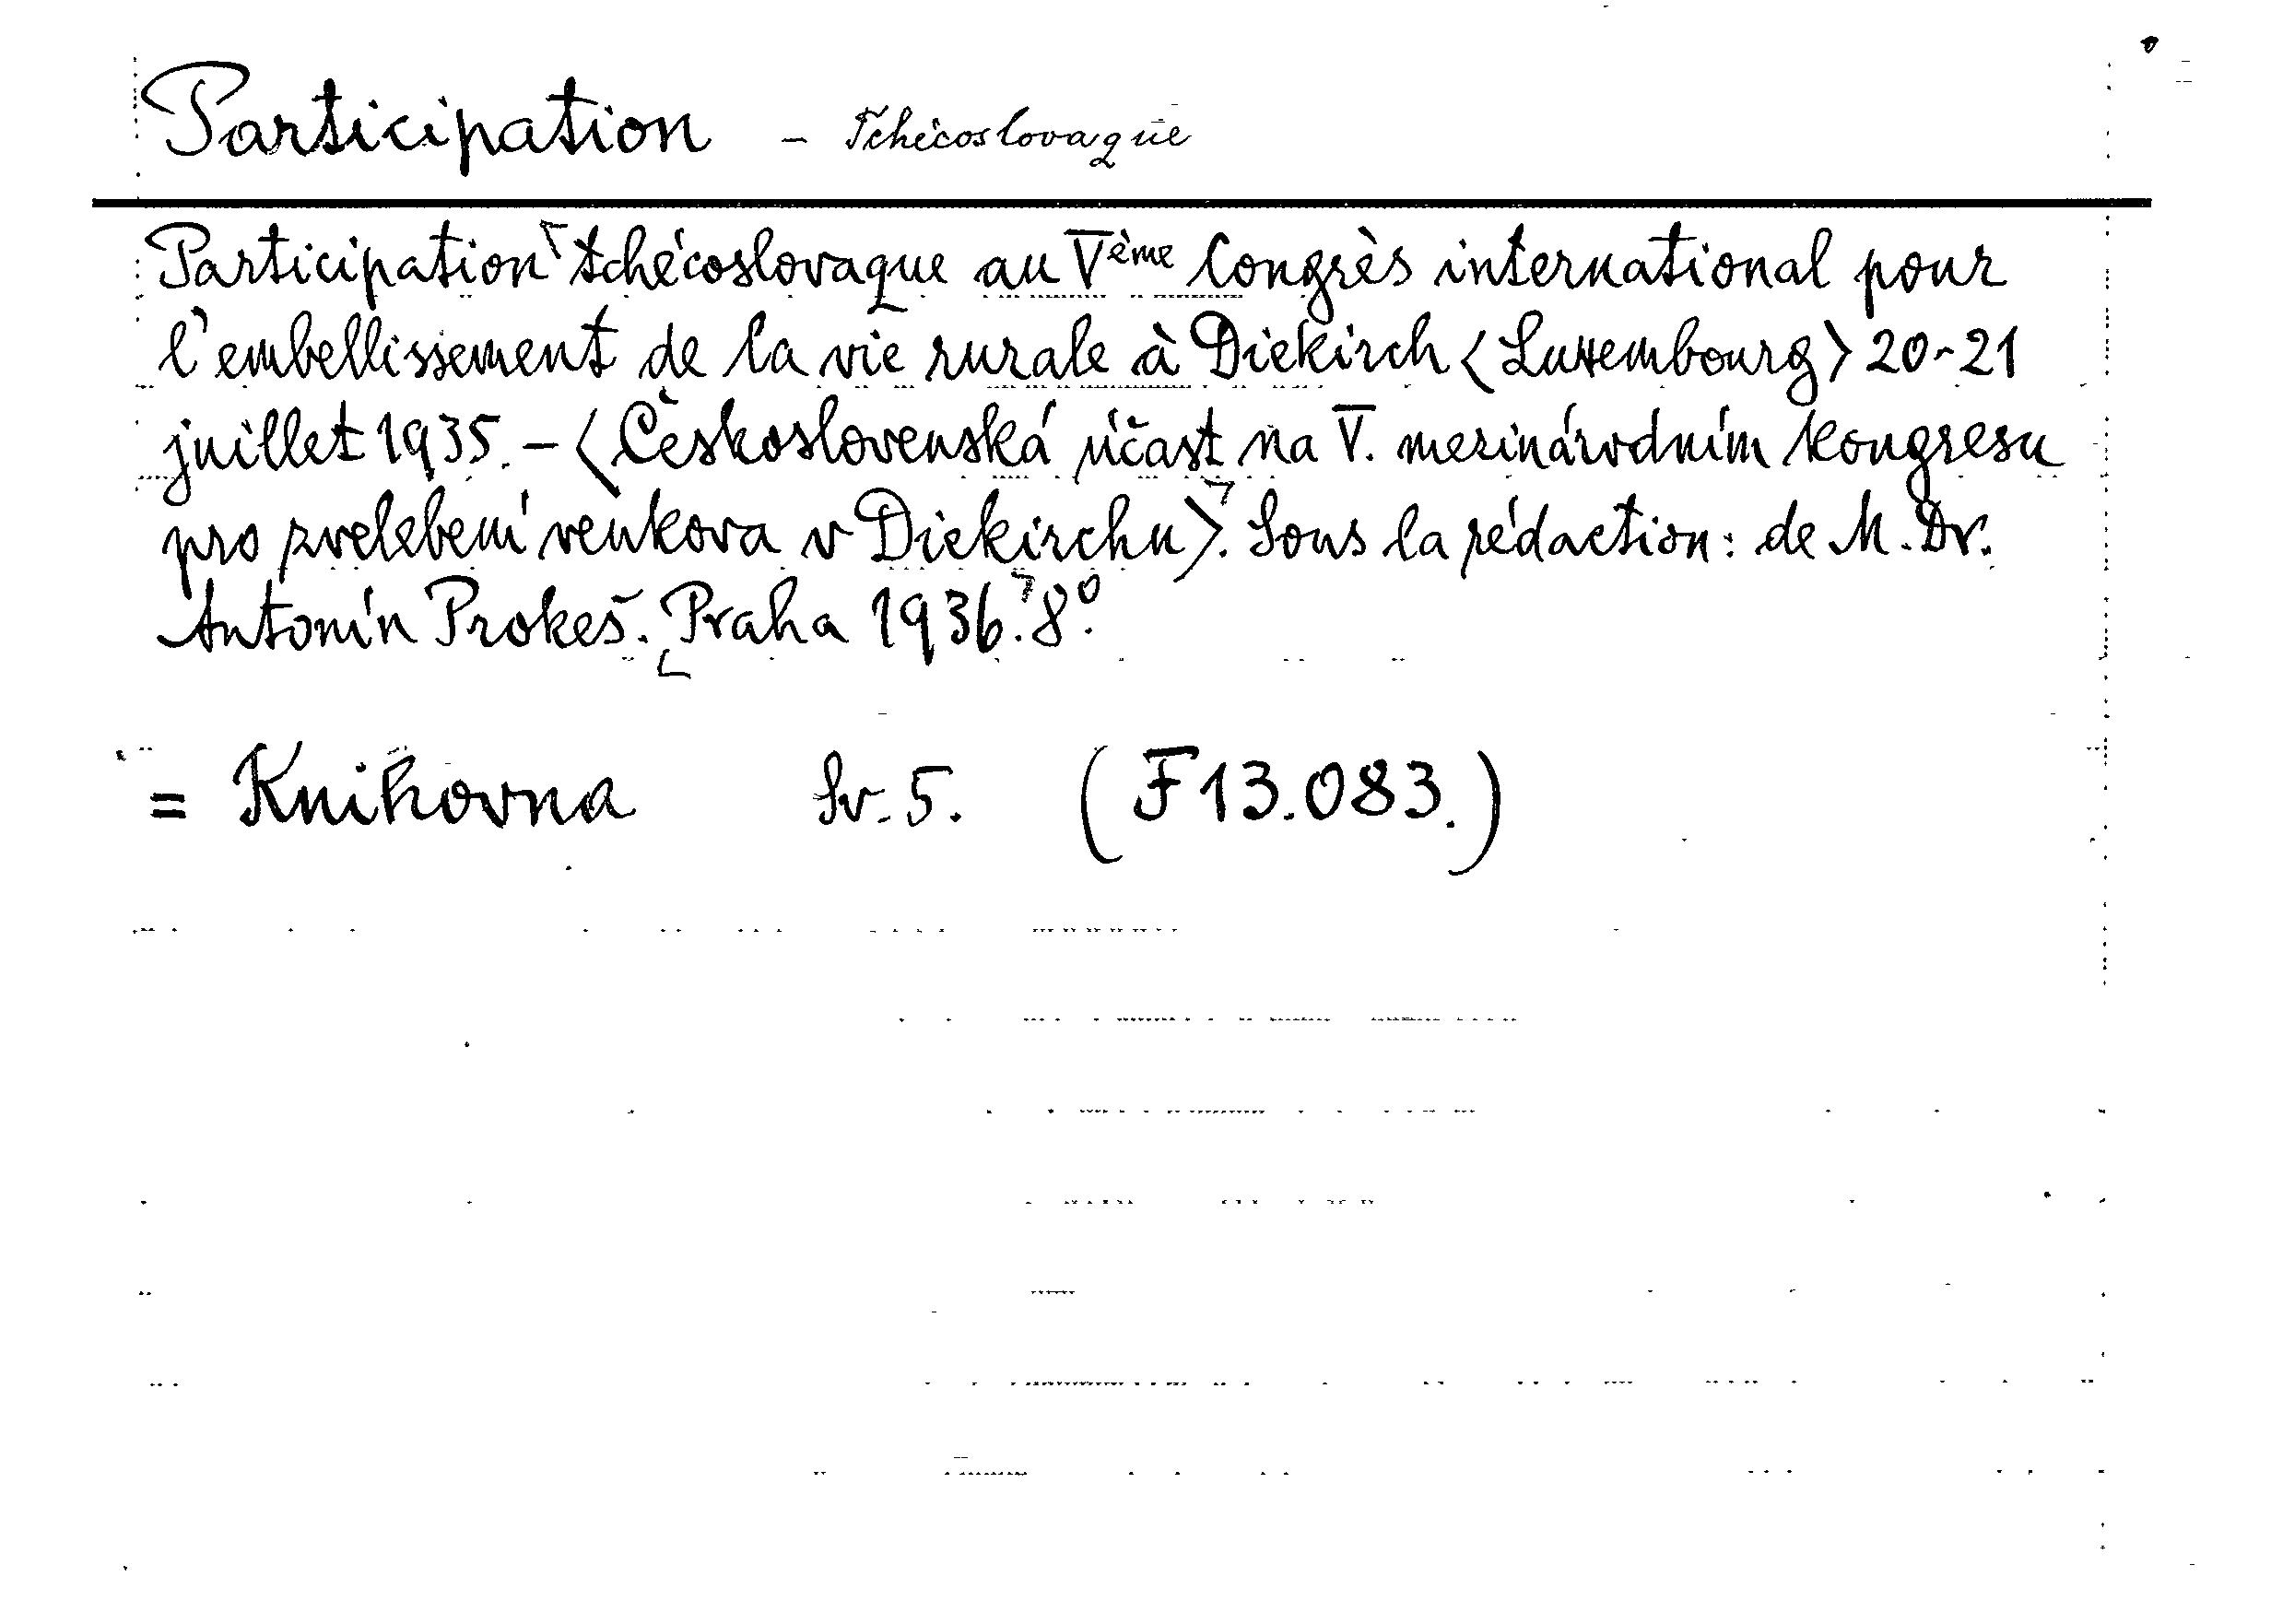 Participation - Tchécoslovaque
Participation tchécoslovaque au Vème Congrès international pour
l'embellissement de la vie rurale à Diekirch <Luxembourg> 20-21
juillet 1935. - <Československá účast na V. mezinárodním kongresu
pro zvelebení venkova v Diekirchu>. Sous la rédaction: de M. Dr.
Antonín Prokeš. Praha 1936. 8°.
= Knihovna Sv. 5. (F13.083.)